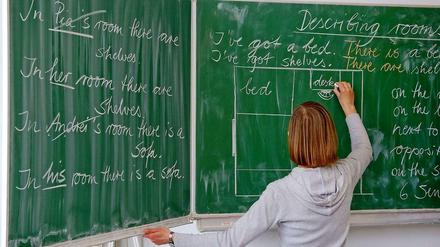 In Pia's room there are
shelves.
In her room there are
shelves
In Andrei's room there is a
sofa.
In his room there is a sofa.
Describing rooms
I've got a bed. There is a be
I've got shelves. There are shel
bed
desk
on the
on the
next to
opposit
on the
6 Sen